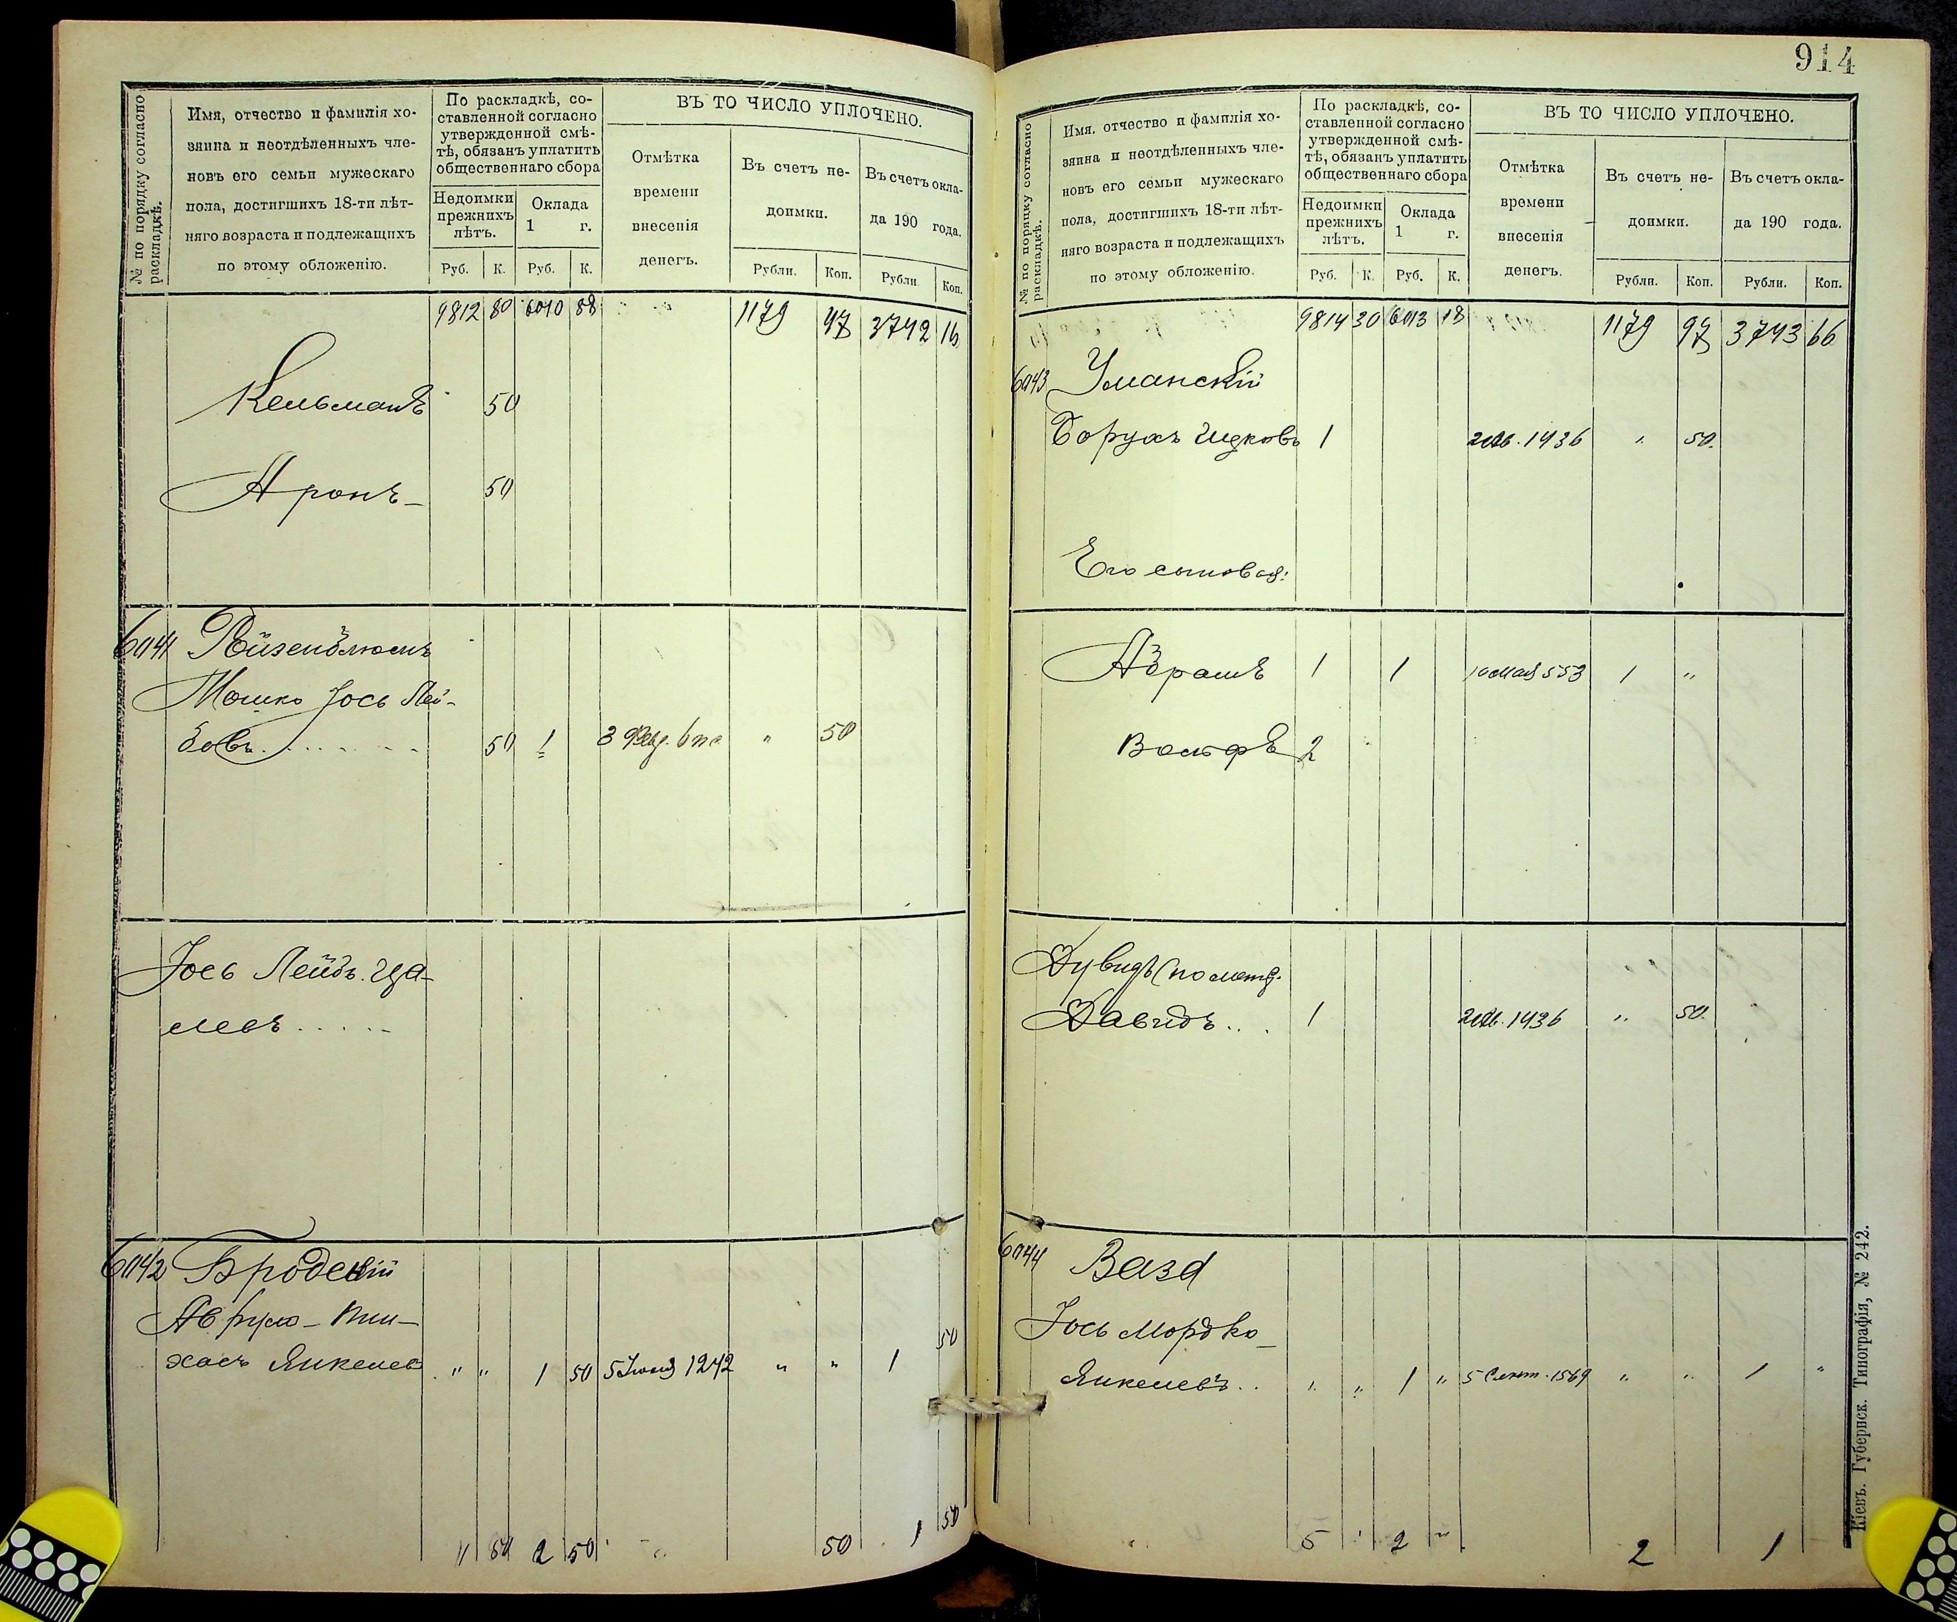 914
№ по порядку согласно раскладкѣ.
Имя, отчество и фамилія хо-
зяина и неотдѣленныхъ чле-
новъ его семьи мужескаго
пола, достигшихъ 18-ти лѣт-
няго возраста и подлежащихъ
по этому обложенію.
По раскладкѣ, со-
ставленной согласно
утвержденной смѣ-
тѣ, обязанъ уплатить
общественнаго сбора
Недоимки
прежнихъ
лѣтъ.
Оклада
1 г.
Руб. К. Руб. К.
ВЪ ТО ЧИСЛО УПЛОЧЕНО.
Отмѣтка
времени
внесенія
денегъ.
Въ счетъ не-
доимки.
Рубли. Коп.
Въ счетъ окла-
да 190 года.
Рубли Коп.
9812 80 6010 88 1179 97 3742 16
Кельманъ 50
Аронъ 50
6041 Вайзенблюмъ
Мошко Іось Лей-
бовъ 50 1 " 50
Іось Лейбъ. Ица-
левъ
6042 Бродскій
Аврумъ-Пин-
хасъ Янкелев " " 1 50 5 Іюня 1242 " " 1 50
" 50 2 50 50 1 50
№ по порядку согласно раскладкѣ.
Имя, отчество и фамилія хо-
зяина и неотдѣленныхъ чле-
новъ его семьи мужескаго
пола, достигшихъ 18-ти лѣт-
няго возраста и подлежащихъ
по этому обложенію.
По раскладкѣ, со-
ставленной согласно
утвержденной смѣ-
тѣ, обязанъ уплатить
общественнаго сбора
Недоимки
прежнихъ
лѣтъ.
Оклада
1 г.
Руб. К. Руб. К.
ВЪ ТО ЧИСЛО УПЛОЧЕНО.
Отмѣтка
времени
внесенія
денегъ.
Въ счетъ не-
доимки.
Рубли. Коп.
Въ счетъ окла-
да 190 года.
Рубли. Коп.
9814 30 6013 18 1179 97 3743 66
6043 Уманскій
Борухъ Ицковъ 1 1436 " 50.
Его сыновья:
Абрамъ 1 1 10 Мая 553 1 "
Вольфъ 2
Дувидъ (по метр.
Давидъ 1 1436 " 50.
6044 Вазд
Іось Мордко
Янкелевъ " " 1 " 5 Сент. 1569 " " 1 "
5 2 " 2 1
Кіевъ. Губернск. Типографія, № 242.